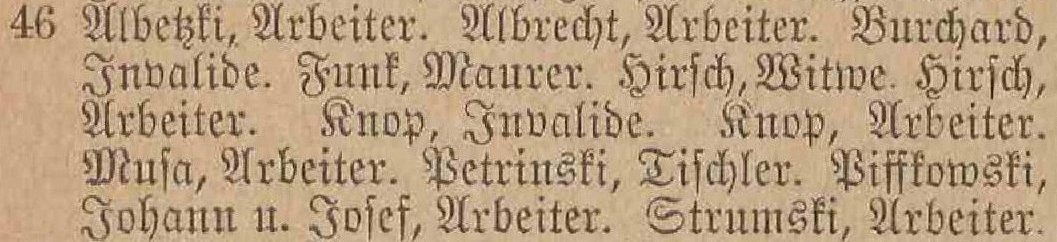 46 Albetzki, Arbeiter. Albrecht, Arbeiter. Burchard,
Invalide. Funk, Maurer. Hirsch, Witwe. Hirsch,
Arbeiter. Knop, Invalide. Knop, Arbeiter.
Musa, Arbeiter. Petrinski, Tischler. Piffkowski,
Johann u. Josef, Arbeiter. Strumski, Arbeiter.